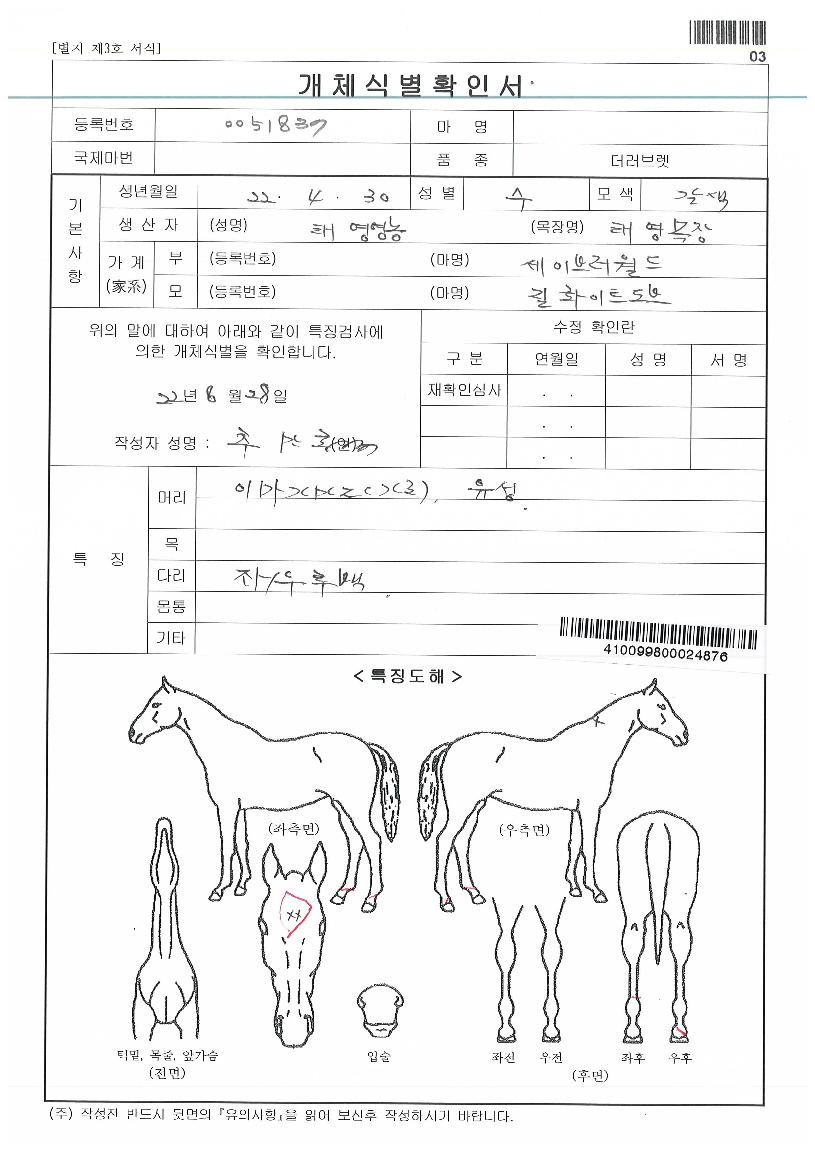 [별지 제3호 서식]
03
개체식별확인서
등록번호 0051837 마 명
국제마번 품 종 더러브렛
기본사항
생년월일 22. 4. 30 성별 수 모색 갈색
생 산 자 (성명) 태영영농 (목장명) 태영목장
가계(家系) 부 (등록번호) (마명) 세이브더월드
모 (등록번호) (마명) 화이트
위의 말에 대하여 아래와 같이 특징검사에
의한 개체식별을 확인합니다.
22년 8월 28일
작성자 성명 :
수정 확인란
구 분 연월일 성 명 서 명
재확인심사 . .
. .
. .
특 징
머리 유성
목
다리 좌우후백
몸통
기타
410099800024876
< 특징도해 >
(좌측면)
(우측면)
턱밑, 목줄, 앞가슴
(전면)
입술
좌전 우전 좌후 우후
(후면)
(주) 작성전 반드시 뒷면의 『유의사항』을 읽어 보신후 작성하시기 바랍니다.